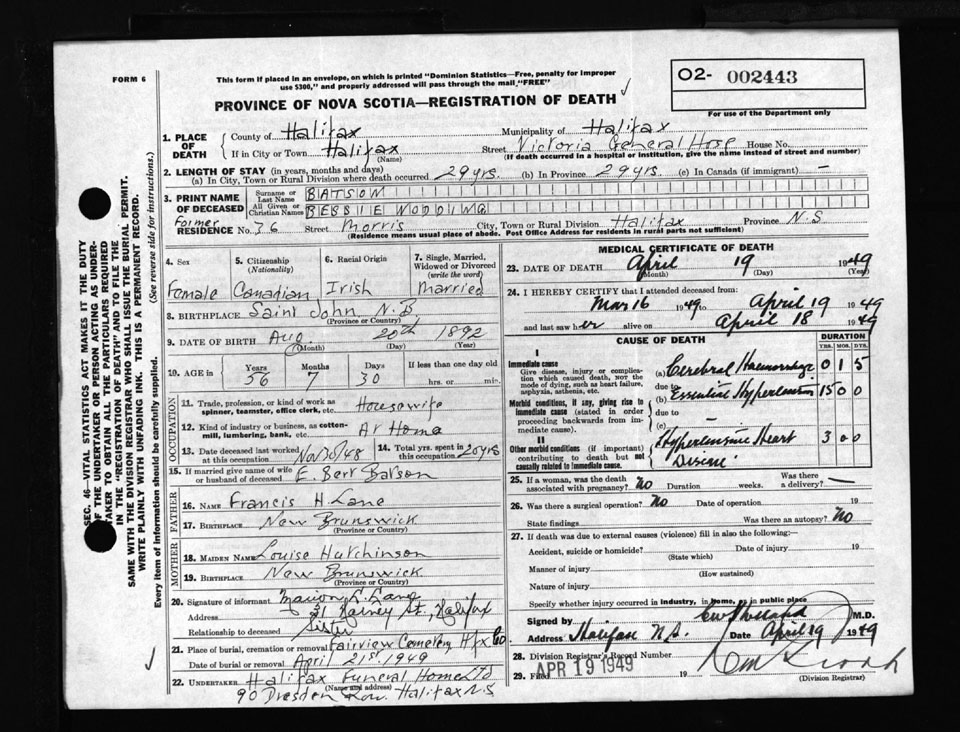 FORM 6
This form if placed in an envelope, on which is printed "Dominion Statistics—Free, penalty for improper
use $300," and properly addressed will pass through the mail "FREE"
O2- 002443
PROVINCE OF NOVA SCOTIA—REGISTRATION OF DEATH
For use of the Department only
1. PLACE OF DEATH
County of Halifax Municipality of Halifax
If in City or Town Halifax Street Victoria General Hosp House No.
(Name) (If death occurred in a hospital or institution, give the name instead of street and number)
2. LENGTH OF STAY (in years, months and days)
(a) In City, Town or Rural Division where death occurred 29 yrs. (b) In Province 29 yrs. (c) In Canada (if immigrant) —
3. PRINT NAME OF DECEASED
Surname or Last Name BATSON
All Given or Christian Names BESSIE
Former
RESIDENCE No. 36 Street Morris City, Town or Rural Division Halifax Province N.S
(Residence means usual place of abode. Post Office Address for residents in rural parts not sufficient)
4. Sex
Female
5. Citizenship
(Nationality)
Canadian
6. Racial Origin
Irish
7. Single, Married,
Widowed or Divorced
(write the word)
Married
8. BIRTHPLACE Saint John N.B
(Province or Country)
9. DATE OF BIRTH Aug 20th 1892
(Month) (Day) (Year)
10. AGE in
Years Months Days If less than one day old
56 7 30 hrs. or min.
OCCUPATION
11. Trade, profession, or kind of work as
spinner, teamster, office clerk, etc. Housewife
12. Kind of industry or business, as cotton-
mill, lumbering, bank, etc. At Home
13. Date deceased last worked at this occupation Nov 30/48
14. Total yrs. spent in this occupation 20 yrs
15. If married give name of wife
or husband of deceased E. Bert Batson
FATHER
16. NAME Francis H. Lane
17. BIRTHPLACE New Brunswick
(Province or Country)
MOTHER
18. MAIDEN NAME Louise Hutchinson
19. BIRTHPLACE New Brunswick
(Province or Country)
20. Signature of informant Marion L. Lane
Address St., Halifax
Relationship to deceased Sister
21. Place of burial, cremation or removal Fairview Cemetery Hfx Co.
Date of burial or removal April 21st 1949
22. UNDERTAKER Halifax Funeral Home Ltd
(Name and address)
90 Dresden Row. Halifax N.S
MEDICAL CERTIFICATE OF DEATH
23. DATE OF DEATH April 19 1949
(Month) (Day) (Year)
24. I HEREBY CERTIFY that I attended deceased from:
Mar 16 1949 to April 19 1949
and last saw her alive on April 18 1949
CAUSE OF DEATH
DURATION
YRS. MOS. DYS.
I
Immediate cause
Give disease, injury or complica-
tion which caused death, not the
mode of dying, such as heart failure,
asphyxia, asthenia, etc.
(a) Cerebral Haemorrhage 0 1 5
due to
Morbid conditions, if any, giving rise to
immediate cause (stated in order
proceeding backwards from im-
mediate cause).
(b) Essential Hypertension 15 0 0
due to
(c) —
II
Other morbid conditions (if important)
contributing to death but not
causally related to immediate cause.
Hypertensive Heart 3 0 0
Disease
25. If a woman, was the death
associated with pregnancy? No Duration weeks. Was there a delivery? —
26. Was there a surgical operation? No Date of operation 19
State findings Was there an autopsy? No
27. If death was due to external causes (violence) fill in also the following:—
Accident, suicide or homicide? Date of injury 19
(State which)
Manner of injury
(How sustained)
Nature of injury
Specify whether injury occurred in industry, in home, or in public place
Signed by M.D.
Address Halifax N.S. Date April 19 1949
28. Division Registrar's Record Number
29. Filed APR 19 1949
(Division Registrar)
SEC. 46—VITAL STATISTICS ACT MAKES IT THE DUTY
OF THE UNDERTAKER OR PERSON ACTING AS UNDER-
TAKER TO OBTAIN ALL THE PARTICULARS REQUIRED
IN THE "REGISTRATION OF DEATH" AND TO FILE THE
SAME WITH THE DIVISION REGISTRAR WHO SHALL ISSUE THE BURIAL PERMIT.
WRITE PLAINLY WITH UNFADING INK. THIS IS A PERMANENT RECORD.
Every item of information should be carefully supplied. (See reverse side for instructions.)